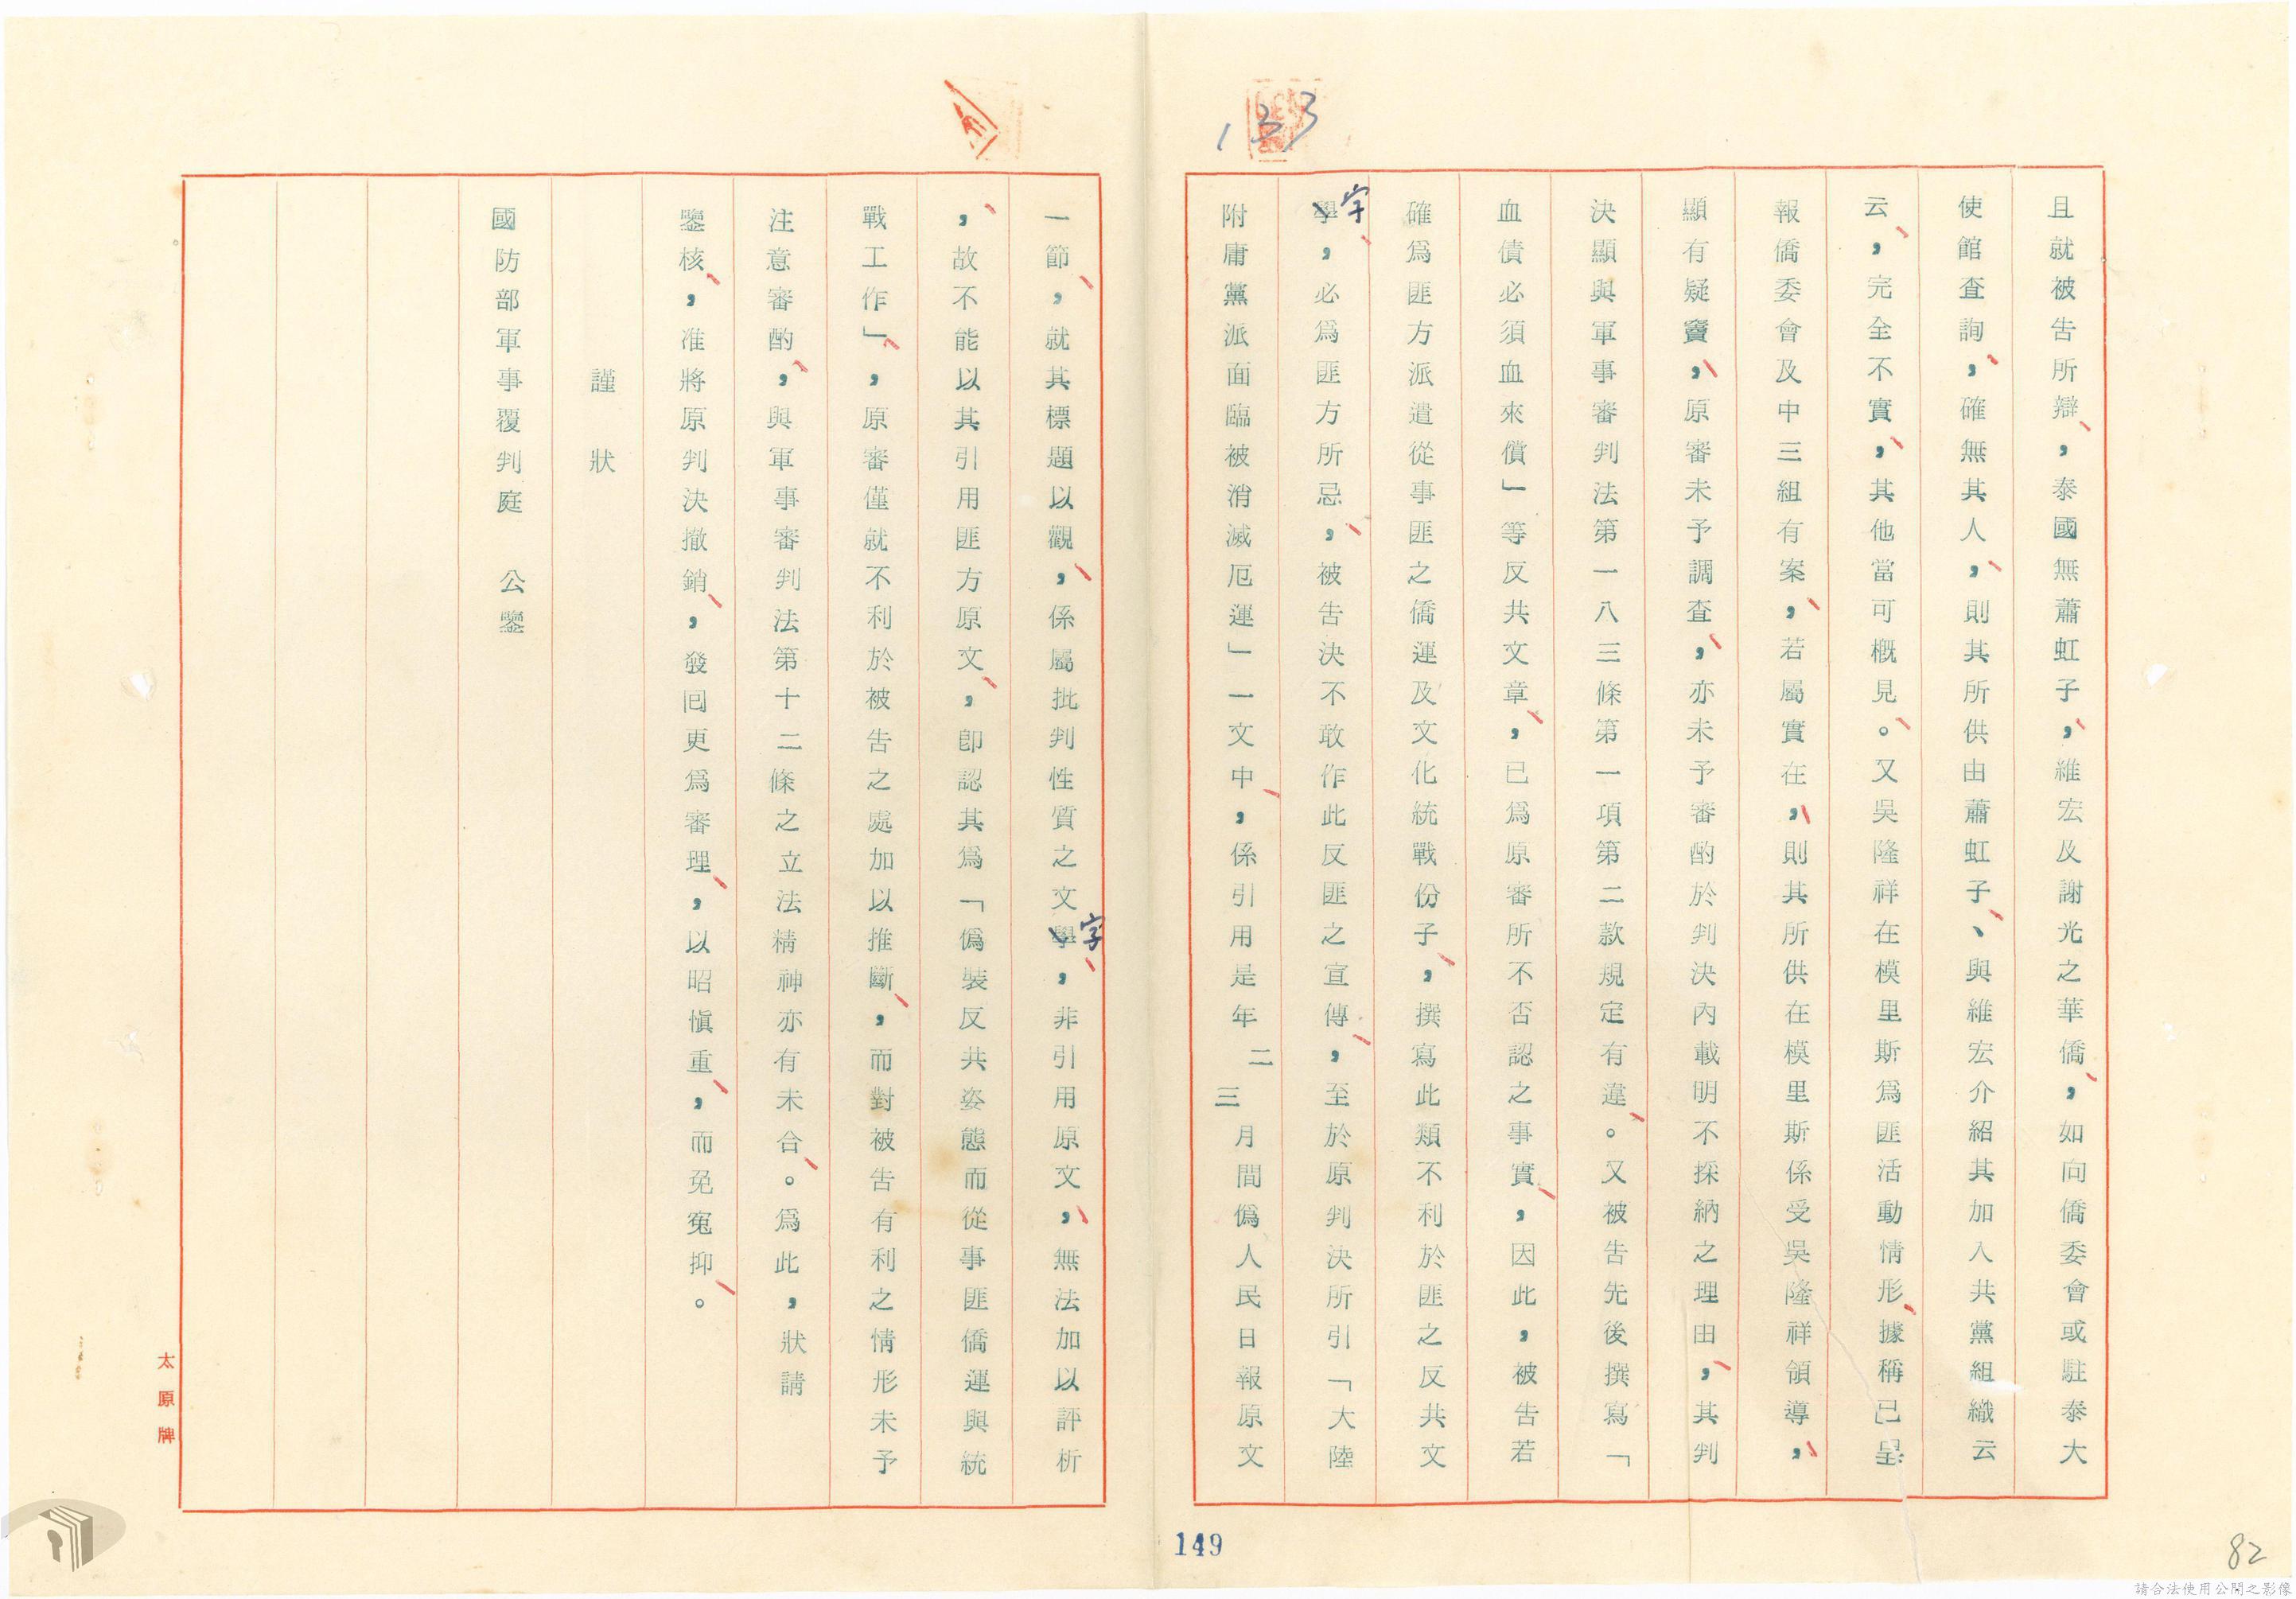 133
且就被告所辯，泰國無蕭虹子，維宏及謝光之華僑，如向僑委會或駐泰大
使館查詢，確無其人，則其所供由蕭虹子、與維宏介紹其加入共黨組織云
云，完全不實，其他當可概見。又吳隆祥在模里斯爲匪活動情形據稱已呈
報僑委會及中三組有案，若屬實在，則其所供在模里斯係受吳隆祥領導，
顯有疑竇，原審未予調查，亦未予審酌於判決內載明不採納之理由，其判
決顯與軍事審判法第一八三條第一項第二款規定有違。又被告先後撰寫「
血債必須血來償」等反共文章，已爲原審所不否認之事實，因此，被告若
確爲匪方派遣從事匪之僑運及文化統戰份子，撰寫此類不利於匪之反共文
字，必爲匪方所忌，被告決不敢作此反匪之宣傳，至於原判決所引「大陸
附庸黨派面臨被消滅厄運」一文中，係引用是年二三月間僞人民日報原文
一節，就其標題以觀，係屬批判性質之文字，非引用原文，無法加以評析
，故不能以其引用匪方原文，卽認其爲「僞裝反共姿態而從事匪僑運與統
戰工作」，原審僅就不利於被告之處加以推斷，而對被告有利之情形未予
注意審酌，與軍事審判法第十二條之立法精神亦有未合。爲此，狀請
鑒核，准將原判決撤銷，發回更爲審理，以昭愼重，而免冤抑。
謹狀
國防部軍事覆判庭　公鑒
太原牌
149
82
請合法使用公開之影像